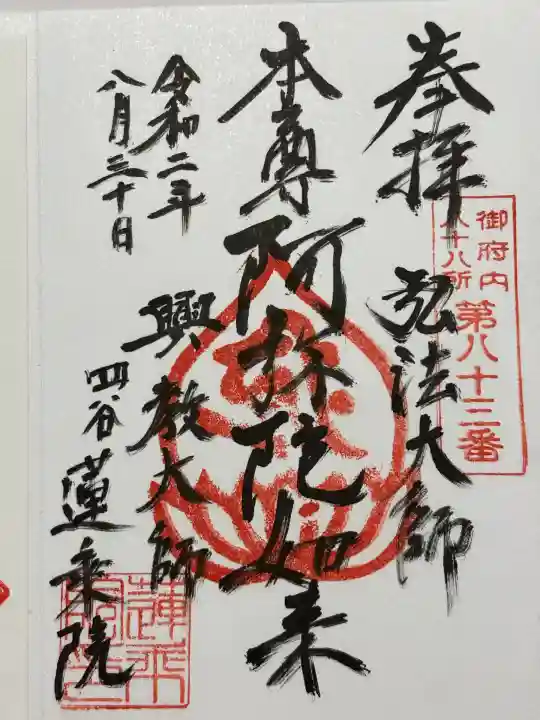 奉拝
弘法大師
御府内
八十八所
第八十三番
本尊阿弥陀如来
興教大師
令和二年
八月三十日
四谷蓮乗院
蓮乗
院